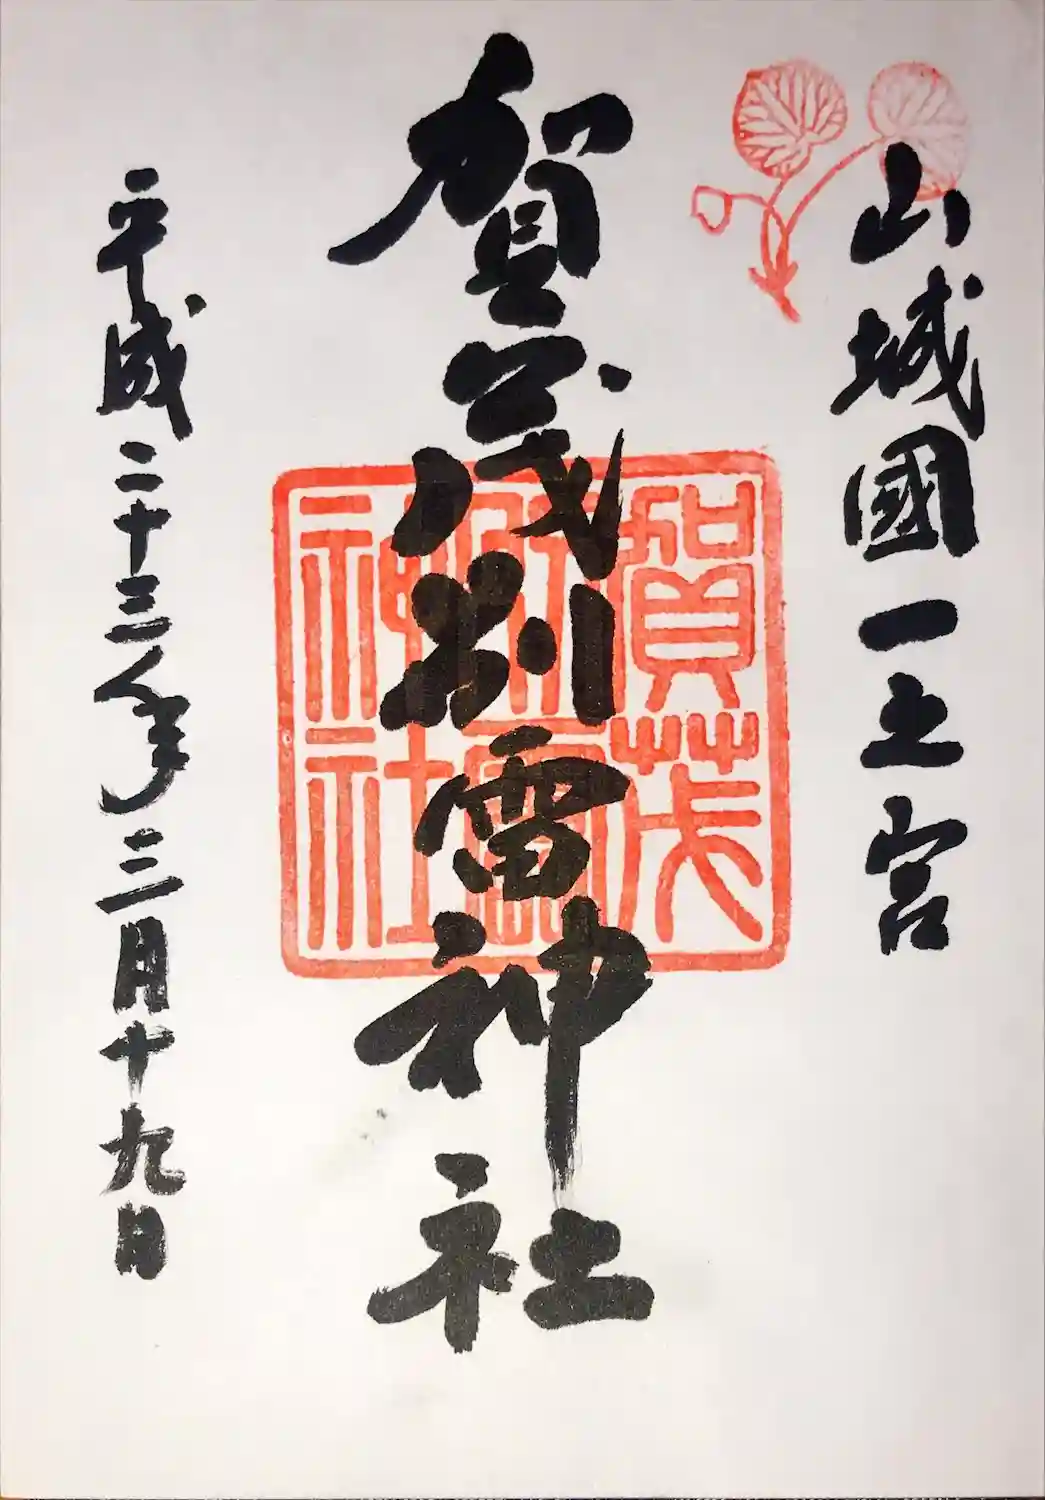 山城國一之宮
賀茂別雷神社
賀茂
別雷
神社
平成二十三年三月十九日